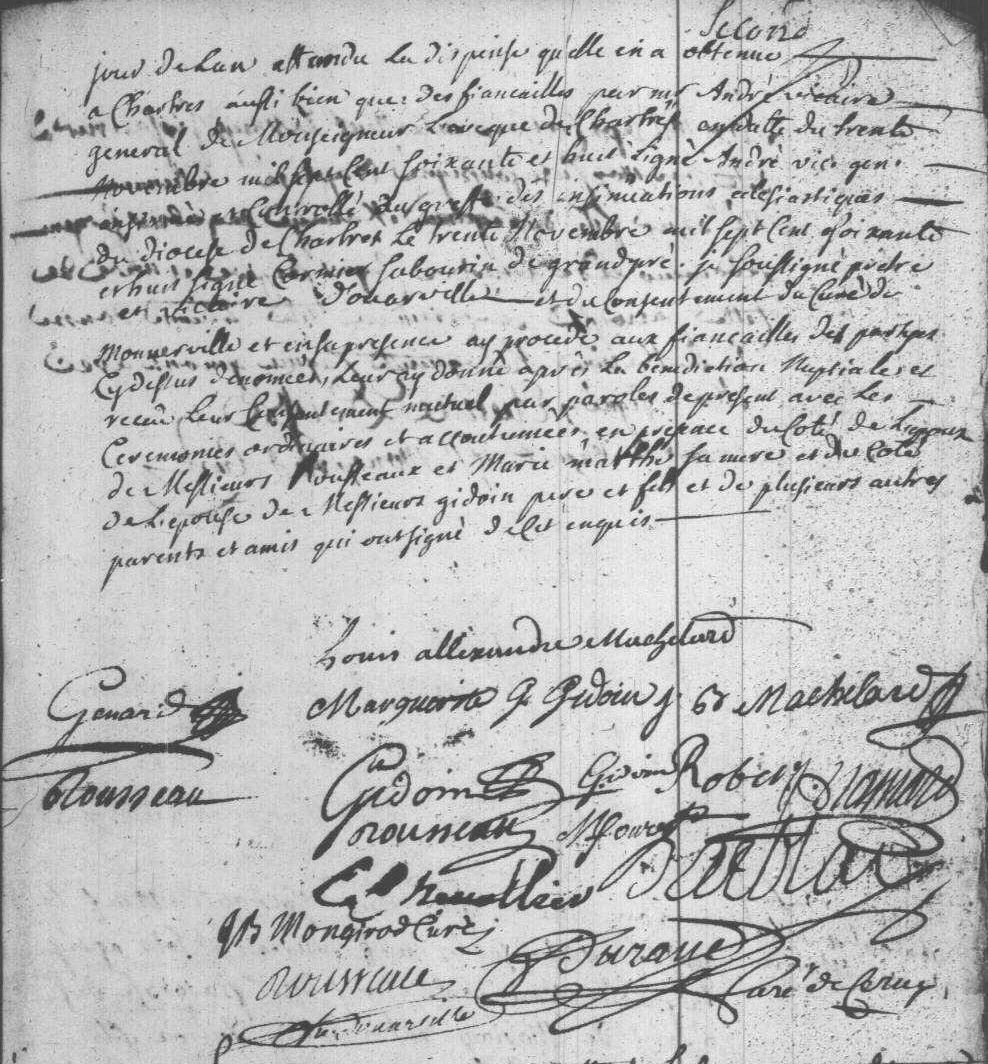 Second
jour de Lan attendu La dispense qu'elle en a obtenue
a Chartres aussi bien que des fiancailles par mr André vicaire
general de Monseigneur L'aveque de Chartres en datte du trente
Novembre mil sept Cent soixante et huit signé André vic. gen.
Controllé au greffe des insinuations eclesiastiques
du diocese de Chartres Le trente Novembre mil sept Cent soixante
et huit signé sabourin de grandpré. je soussigné pretre
et vicaire d'ouarville et du Consentement du Curé de
Monnerville et en sa presence ay procedé aux fiancailles des parties
Cy dessus denomées, Leur ay donné après La benediction Nuptiale et
receu Leur Consentement mutuel par paroles de present avec Les
Ceremonies ordinaires et accoutumées en presence du Coté de L'epoux
de Messieurs Rousseaux et Marie marthe sa mere et du Coté
de L'epouse de Messieurs gidoin pere et fils et de plusieurs autres
parents et amis qui ont signé de Cet enquis
Louis allexandre Machelard
Genard Marguerite G. Gidoin j Gd Machelard
Rousseau Gidoin Gidoin Robert
Rousseau
C. Chevallier
JB Mongirod Curé
Rousseau Durand Curé de